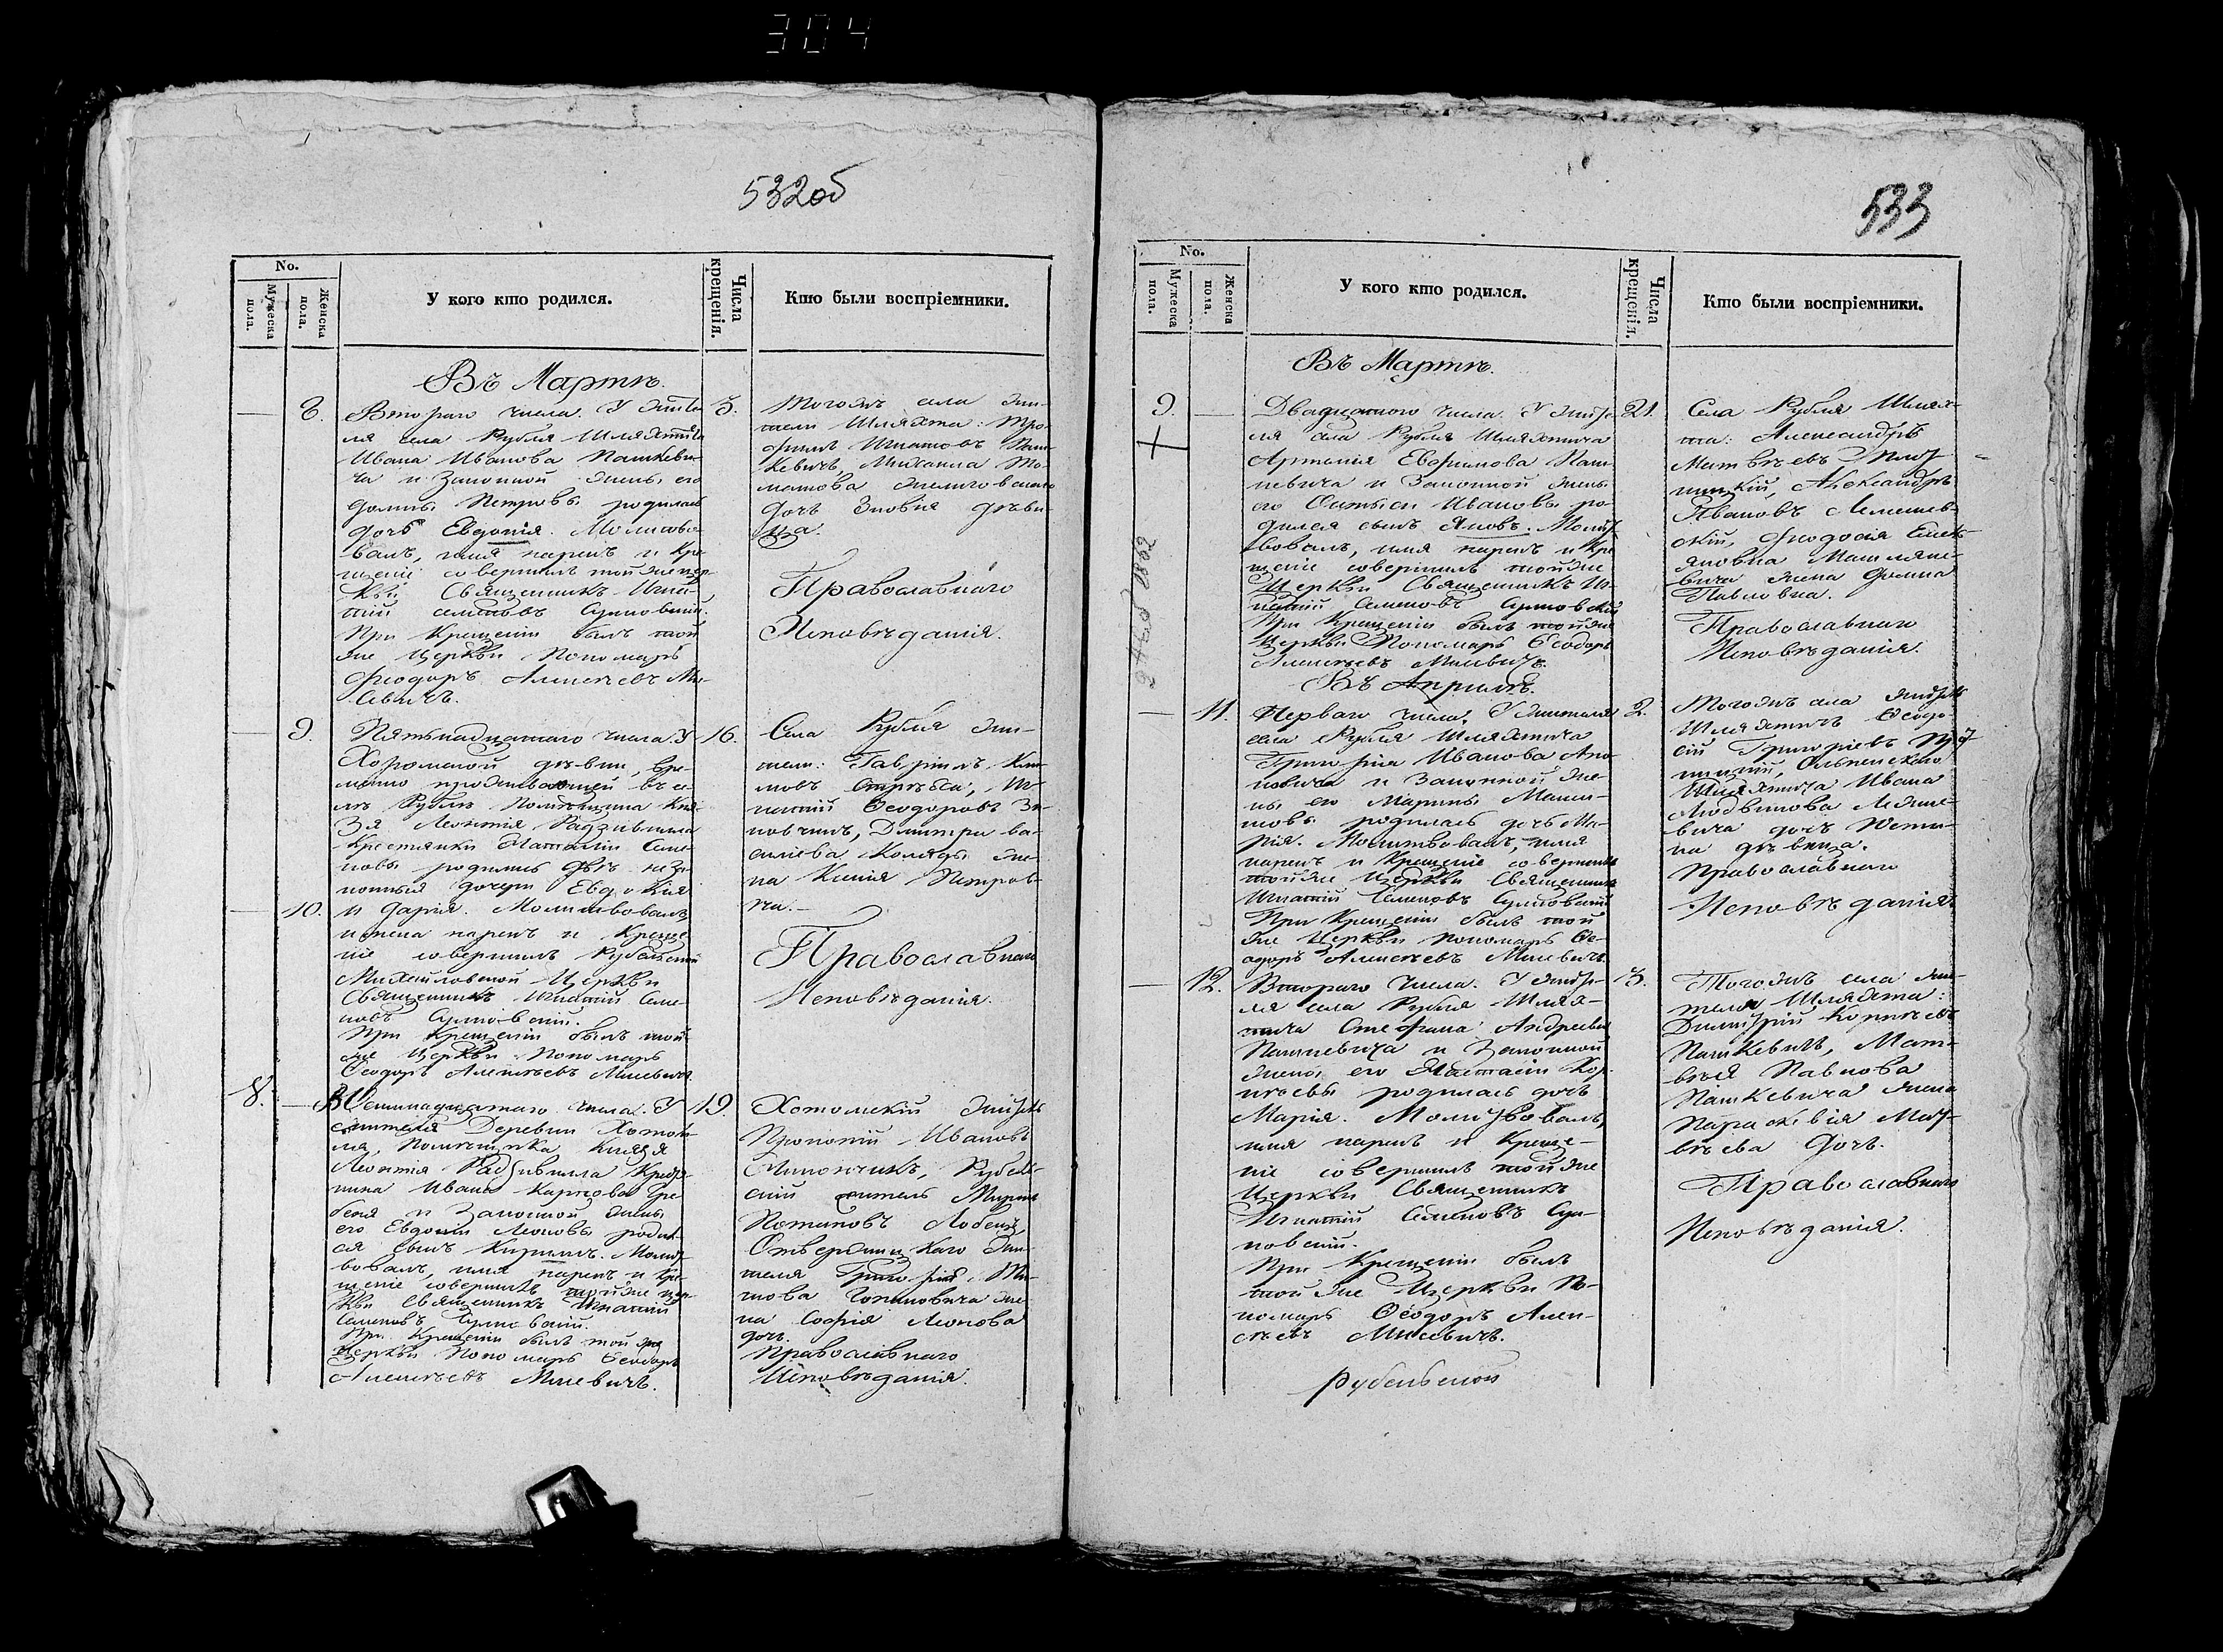 304
532об
No.
Мужеска пола.
Женска пола.
У кого кто родился.
Числа крещенія.
Кто были воспріемники.
Въ Мартѣ.
8.
Втораго числа. У жите
ля села Рубля Шляхтича
Ивана Иванова Пашкеви
ча и законной жены его
Домны Петровы родилась
дочь Евдокія. Молитво
валъ, имя нарекъ и Кре
щеніе совершилъ тойже цер
кви Священникъ Игна
тій Семеновъ
При Крещеніи былъ той
же Церкви Пономарь
Ѳеодоръ Алексѣевъ Ми
севичъ.
3.
Тогожъ села жи
тели Шляхта: Тро
фимъ Игнатовъ Паш
кевичъ, Михаила
дочь Зновія дѣви
ца.
Православнаго
Исповѣданія.
9.
Пятьнадцатаго числа. У
Хоромской дѣвки, вре
менно проживающей въ се
лѣ Рублѣ Помѣщика Кня
зя Леонтія Радзивилла
Крестьянки Наталіи Семе
новы родились двѣ неза
конныя дочери Евдокія
10.
и Дарія. Молитвовалъ,
имена нарекъ и Креще
ніе совершилъ Рубельской
Михайловской Церкви
Священникъ Игнатій Семе
новъ
При Крещеніи былъ той
же Церкви Пономарь
Ѳеодоръ Алексѣевъ Мисевичъ.
16.
Села Рубля жи
тели: Гавріилъ Кли
мовъ Стрѣха, Иг
натій Ѳеодоровъ
Димитрія Ва
силіева Коляды же
на Ксенія Петров
на.
Православнаго
Исповѣданія.
8.
Осмнадцатаго числа. У
жителя Деревни Хотом
ля, Помѣщика Князя
Леонтія Радзивилла Кресть
нина Ивана Карпова Гре
беня и Законной жены
его Евдокіи Леоновы родил
ся сынъ Кириллъ. Молит
вовалъ, имя нарекъ и Кре
щеніе совершилъ тойже цер
кви Священникъ Игнатій
Семеновъ
При Крещеніи былъ той же
Церкви Пономарь Ѳеодоръ
Алексѣевъ Мисевичъ.
19.
Хотомскій житель
Прокопій Ивановъ
Рубель
скій житель Миронъ
Потаповъ
жи
теля Григорія
же
на Софія Леонова
дочь.
Православнаго
Исповѣданія.
533
No.
Мужеска пола.
Женска пола.
У кого кто родился.
Числа крещенія.
Кто были воспріемники.
Въ Мартѣ.
9.
Двадцатаго числа. У жите
ля села Рубля Шляхтича
Артемія Евфимова Паш
кевича и Законной жены
его Ивановы ро
дился сынъ Яковъ. Молит
вовалъ, имя нарекъ и Кре
щеніе совершилъ тойже
Церкви Священникъ Иг
натій Семеновъ
При Крещеніи былъ тойже
Церкви Пономарь Ѳеодоръ
Алексѣевъ Мисевичъ.
21.
Села Рубля Шлях
та: Александръ
Матвѣевъ
Александръ
Ивановъ
Ѳеодосія
жена Фекла
Павловна.
Православнаго
Исповѣданія.
1862
Въ Апрѣлѣ.
11.
Перваго числа, У жителя
села Рубля Шляхтича
Григорія Иванова
и Законной же
ны его Марины
родилась дочь Ма
рія. Молитвовалъ, имя
нарекъ и Крещеніе совершилъ
тойже Церкви Священникъ
Игнатій Семеновъ
При Крещеніи былъ той
же Церкви Пономарь Ѳе
одоръ Алексѣевъ Мисевичъ.
2.
Тогожъ села житель
Шляхтичъ
Григоріевъ
Шляхтича Ивана
дочь
дѣвица.
Православнаго
Исповѣданія.
12.
Втораго числа. У жите
ля села Рубля Шлях
тича Стефана Андреева
Пашкевича и Законной
жены его Настасіи Кор
нѣевы родилась дочь
Марія. Молитвовалъ,
имя нарекъ и Креще
ніе совершилъ тойже
Церкви Священникъ
Игнатій Семеновъ
При Крещеніи былъ
той же Церкви По
номарь Ѳеодоръ Алек
сѣевъ Мисевичъ.
3.
Тогожъ села жи
тели Шляхта:
Димитрій Корнѣевъ
Пашкевичъ, Мат
вѣя Павлова
Пашкевича жена
Параскевія Мат
вѣева дочь.
Православнаго
Исповѣданія.
Рубельской